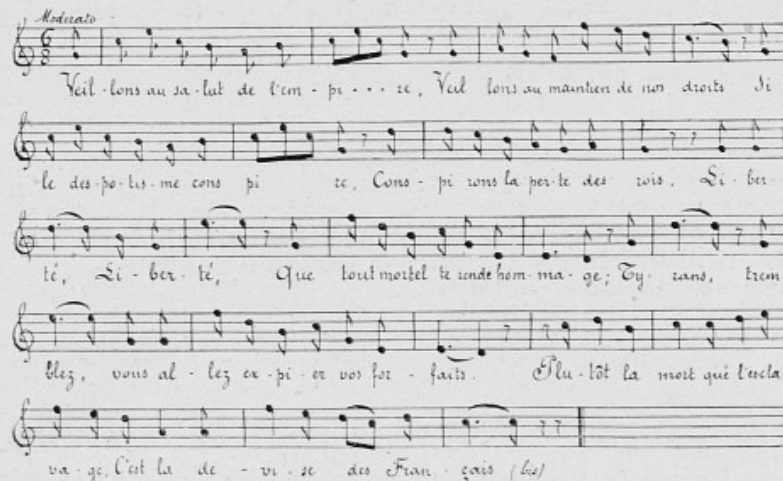 Moderato
Veil-lons au sa-lut de l'em-pi---re, Veil lons au maintien de nos droits Si
le des-po-tis-me cons pi re, Cons-pi rons la per-te des rois. Li-ber-
té, Li-ber-té, Que tout mortel te rende hom-ma-ge; Ty-rans, trem
blez, vous al-lez ex-pi-er vos for-faits. Plu-tôt la mort que l'escla
va-ge, C'est la de-vi-se des Fran-çais (bis)